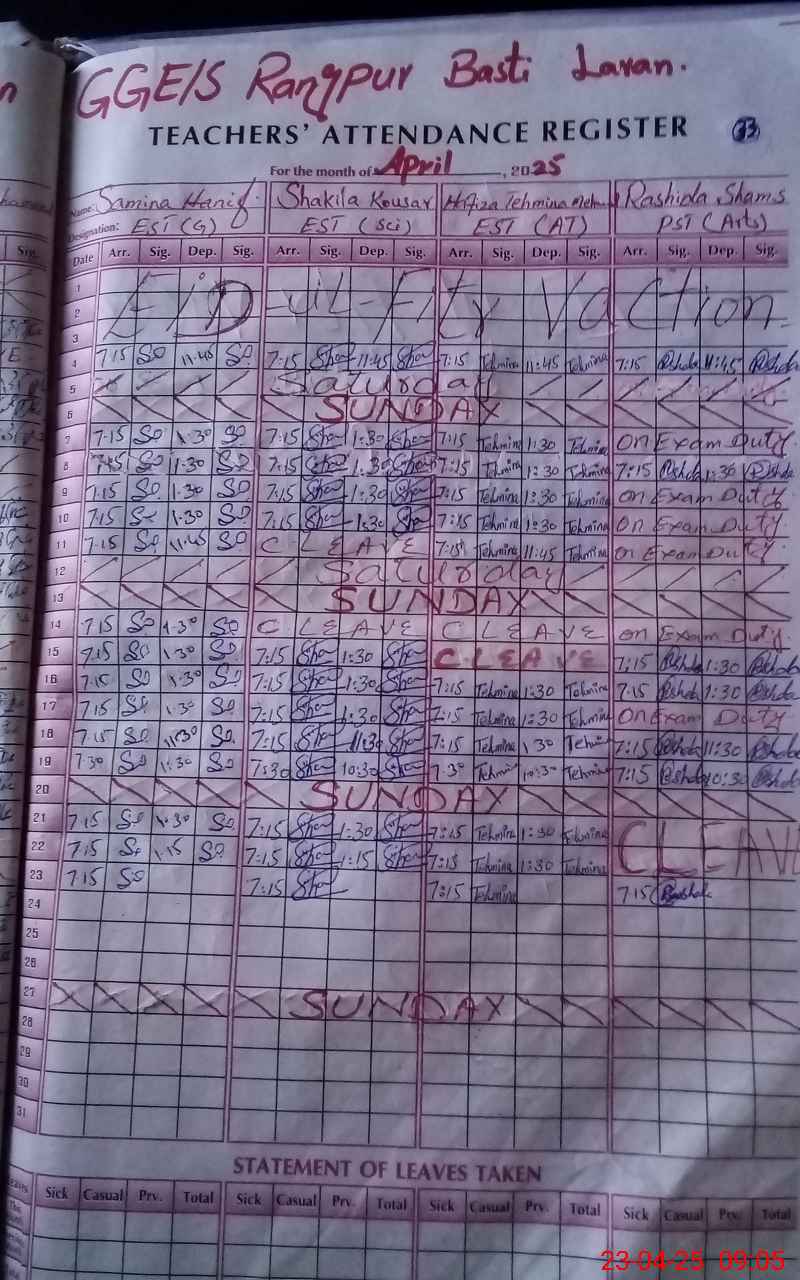 GGE/S Rangpur Basti Laran.
TEACHERS' ATTENDANCE REGISTER 33
For the month of April, 2025
Name: Samina Hanif Shakila Kousar Hafiza Tehmina Rashida Shams
Designation: EST (G) EST (Sci) EST (AT) PST (Arts)
Date Arr. Sig. Dep. Sig. Arr. Sig. Dep. Sig. Arr. Sig. Dep. Sig. Arr. Sig. Dep. Sig.
1
2 EID-ul-Fitr Vaction
3
4 7:15 So 11:45 So 7:15 Sha 11:45 Sha 7:15 Tehmina 11:45 Tehmina 7:15 Rshda 11:45 Rshda
5 Saturday
6 SUNDAY
7 7:15 So 1:30 So 7:15 Sha 1:30 Sha 7:15 Tehmina 1:30 Tehmina On Exam Duty.
8 7:15 So 1:30 So 7:15 Sha 1:30 Sha 7:15 Tehmina 1:30 Tehmina 7:15 Rshda 1:30 Rshda
9 7:15 So 1:30 So 7:15 Sha 1:30 Sha 7:15 Tehmina 1:30 Tehmina on Exam Duty.
10 7:15 So 1:30 So 7:15 Sha 1:30 Sha 7:15 Tehmina 1:30 Tehmina On Exam Duty.
11 7:15 So 11:45 So C LEAVE 7:15 Tehmina 11:45 Tehmina on Exam Duty.
12 Saturday
13 SUNDAY
14 7:15 So 1:30 So C LEAVE C LEAVE on Exam Duty.
15 7:15 So 1:30 So 7:15 Sha 1:30 Sha C LEAVE 7:15 Rshda 1:30 Rshda
16 7:15 So 1:30 So 7:15 Sha 1:30 Sha 7:15 Tehmina 1:30 Tehmina 7:15 Rshda 1:30 Rshda
17 7:15 So 1:30 So 7:15 Sha 1:30 Sha 7:15 Tehmina 1:30 Tehmina On Exam Duty
18 7:15 So 11:30 So 7:15 Sha 11:30 Sha 7:15 Tehmina 1:30 Tehmina 7:15 Rshda 11:30 Rshda
19 7:30 So 11:30 So 7:30 Sha 10:30 Sha 7:30 Tehmina 10:30 Tehmina 7:15 Rshda 10:30 Rshda
20 SUNDAY
21 7:15 So 1:30 So 7:15 Sha 1:30 Sha 7:15 Tehmina 1:30 Tehmina C LEAVE
22 7:15 So 1:15 So 7:15 Sha 1:15 Sha 7:15 Tehmina 1:30 Tehmina
23 7:15 So 7:15 Sha 7:15 Tehmina 7:15 Rashda
24
25
26
27 SUNDAY
28
29
30
31
STATEMENT OF LEAVES TAKEN
Sick Casual Prv. Total Sick Casual Prv. Total Sick Casual Prv. Total Sick Casual Prv. Total
23-04-25 09:05